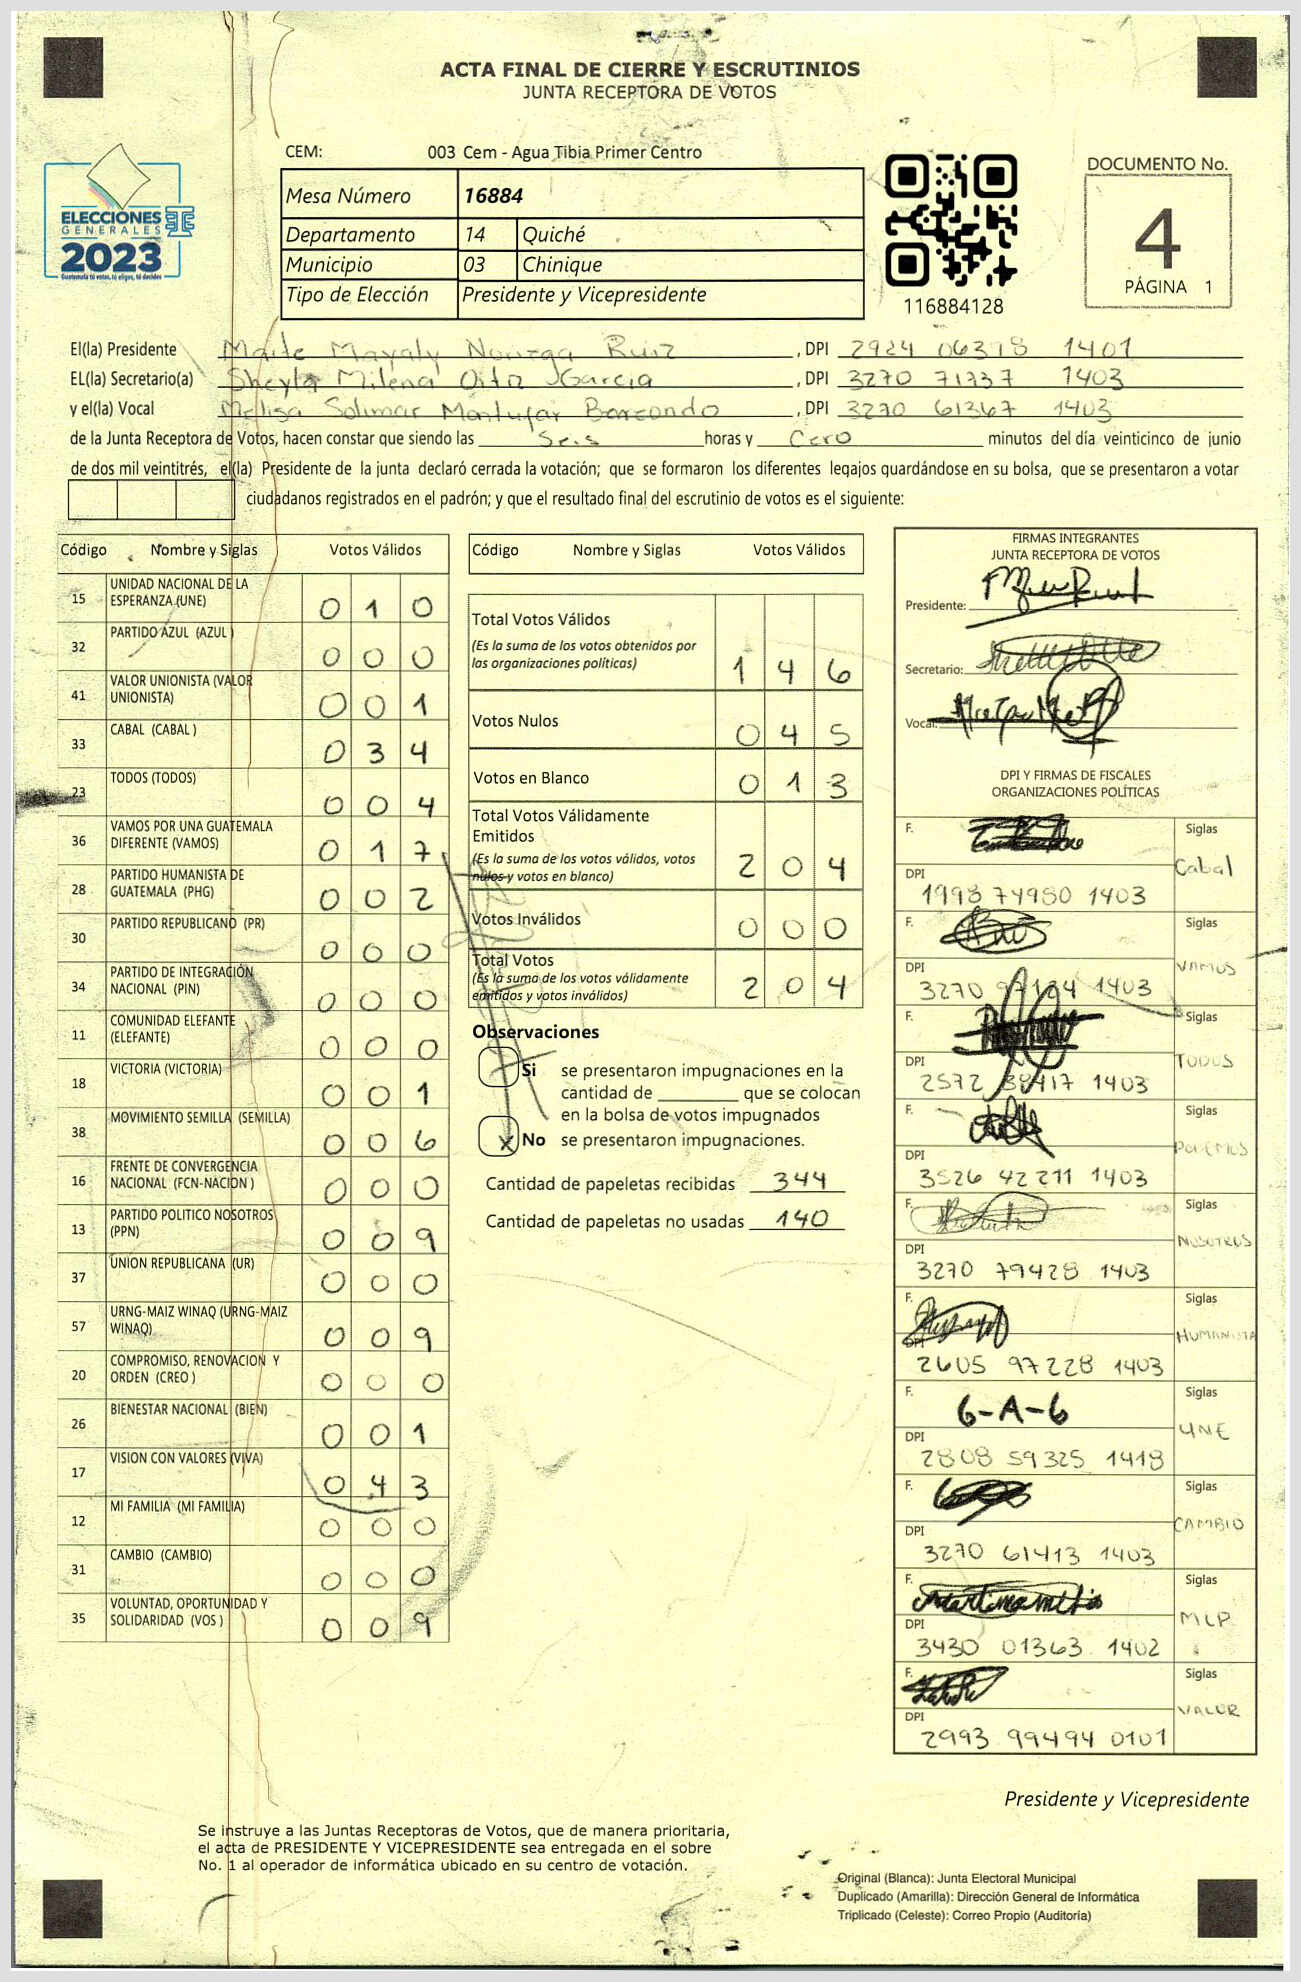 ACTA FINAL DE CIERRE Y ESCRUTINIOS
JUNTA RECEPTORA DE VOTOS
CEM: 003 Cem - Agua Tibia Primer Centro
Mesa Número 16884
Departamento 14 Quiché
Municipio 03 Chinique
Tipo de Elección Presidente y Vicepresidente
ELECCIONES
GENERALES
2023
Guatemala tú votas, tú eliges, tú decides
116884128
DOCUMENTO No.
4
PÁGINA 1
El(la) Presidente Maite Mayaly Noriega Ruiz , DPI 2924 06378 1401
EL(la) Secretario(a) Sheyla Milena Ortiz Garcia , DPI 3270 71737 1403
y el(la) Vocal Melisa Solimar Montufar Barcondo , DPI 3270 61367 1403
de la Junta Receptora de Votos, hacen constar que siendo las Seis horas y Cero minutos del día veinticinco de junio
de dos mil veintitrés, el(la) Presidente de la junta declaró cerrada la votación; que se formaron los diferentes legajos guardándose en su bolsa, que se presentaron a votar
ciudadanos registrados en el padrón; y que el resultado final del escrutinio de votos es el siguiente:
Código Nombre y Siglas Votos Válidos
15 UNIDAD NACIONAL DE LA ESPERANZA (UNE) 0 1 0
32 PARTIDO AZUL (AZUL ) 0 0 0
41 VALOR UNIONISTA (VALOR UNIONISTA) 0 0 1
33 CABAL (CABAL ) 0 3 4
23 TODOS (TODOS) 0 0 4
36 VAMOS POR UNA GUATEMALA DIFERENTE (VAMOS) 0 1 7
28 PARTIDO HUMANISTA DE GUATEMALA (PHG) 0 0 2
30 PARTIDO REPUBLICANO (PR) 0 0 0
34 PARTIDO DE INTEGRACIÓN NACIONAL (PIN) 0 0 0
11 COMUNIDAD ELEFANTE (ELEFANTE) 0 0 0
18 VICTORIA (VICTORIA) 0 0 1
38 MOVIMIENTO SEMILLA (SEMILLA) 0 0 6
16 FRENTE DE CONVERGENCIA NACIONAL (FCN-NACION ) 0 0 0
13 PARTIDO POLITICO NOSOTROS (PPN) 0 0 9
37 UNION REPUBLICANA (UR) 0 0 0
57 URNG-MAIZ WINAQ (URNG-MAIZ WINAQ) 0 0 9
20 COMPROMISO, RENOVACION Y ORDEN (CREO ) 0 0 0
26 BIENESTAR NACIONAL (BIEN) 0 0 1
17 VISION CON VALORES (VIVA) 0 4 3
12 MI FAMILIA (MI FAMILIA) 0 0 0
31 CAMBIO (CAMBIO) 0 0 0
35 VOLUNTAD, OPORTUNIDAD Y SOLIDARIDAD (VOS ) 0 0 9
Código Nombre y Siglas Votos Válidos
Total Votos Válidos
(Es la suma de los votos obtenidos por
las organizaciones políticas) 1 4 6
Votos Nulos 0 4 5
Votos en Blanco 0 1 3
Total Votos Válidamente
Emitidos
(Es la suma de los votos válidos, votos
nulos y votos en blanco) 2 0 4
Votos Inválidos 0 0 0
Total Votos
(Es la suma de los votos válidamente
emitidos y votos inválidos) 2 0 4
Observaciones
Si se presentaron impugnaciones en la
cantidad de ________ que se colocan
en la bolsa de votos impugnados
x No se presentaron impugnaciones.
Cantidad de papeletas recibidas 344
Cantidad de papeletas no usadas 140
FIRMAS INTEGRANTES
JUNTA RECEPTORA DE VOTOS
Presidente:
Secretario:
Vocal:
DPI Y FIRMAS DE FISCALES
ORGANIZACIONES POLÍTICAS
F. Siglas
Cabal
DPI
1998 74980 1403
F. Siglas
VAMOS
DPI
3270 1403
F. Siglas
TODOS
DPI
2572 38417 1403
F. Siglas
PODEMOS
DPI
3526 42211 1403
F. Siglas
NOSOTROS
DPI
3270 79428 1403
F. Siglas
HUMANISTA
DPI
2605 97228 1403
F. 6-A-6 Siglas
UNE
DPI
2808 59325 1418
F. Siglas
CAMBIO
DPI
3270 61413 1403
F. Siglas
MLP
DPI
3430 01363 1402
F. Siglas
VALOR
DPI
2993 99494 0101
Presidente y Vicepresidente
Se instruye a las Juntas Receptoras de Votos, que de manera prioritaria,
el acta de PRESIDENTE Y VICEPRESIDENTE sea entregada en el sobre
No. 1 al operador de informática ubicado en su centro de votación.
Original (Blanca): Junta Electoral Municipal
Duplicado (Amarilla): Dirección General de Informática
Triplicado (Celeste): Correo Propio (Auditoría)